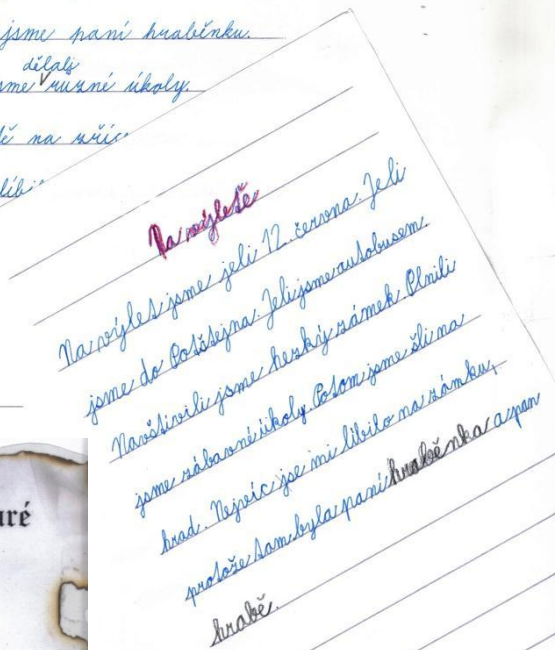 jsme paní hraběnku.
dělaly
sme ruzné úkoly.
ě na zříc
líbi
Na výletě
Na výlet jsme jeli 12. června. Jeli
jsme do Potštejna. Jeli jsme autobusem.
Navštívili jsme hezký zámek. Plnili
jsme zábavné úkoly. Potom jsme šli na
hrad. Nejvíc jse mi líbilo na zámku,
protože tam byla paní hraběnka a pan
hrabě.
uré